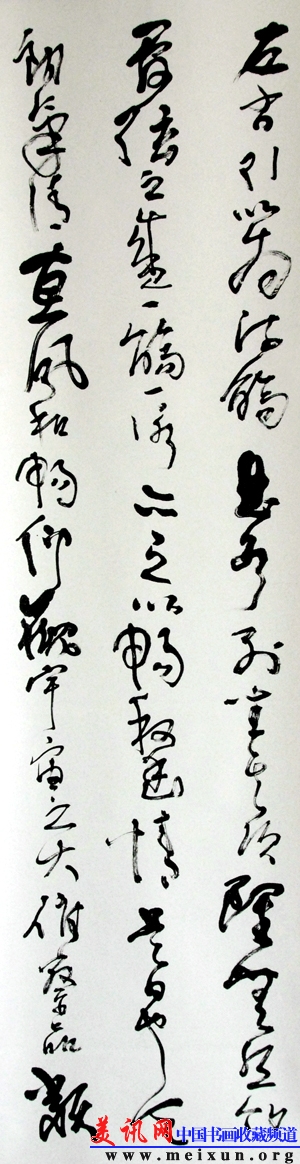 左右引以為流觴曲水列坐其次雖無絲竹
管弦之盛一觴一詠亦足以暢敘幽情是日也天
朗氣清惠風和暢仰觀宇宙之大俯察品類
美讯网 中国书画收藏频道
www.meixun.org